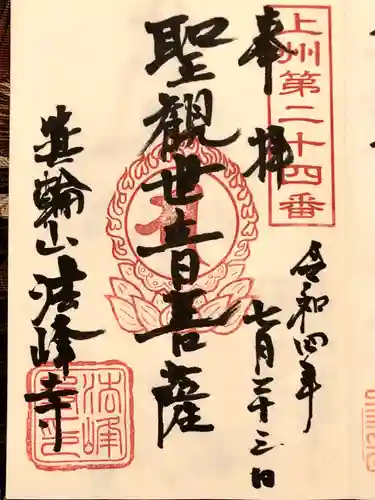 上州第二十四番
奉拝
令和四年
七月二十三日
聖観世音菩薩
箕輪山法峰寺
法峰
寺印